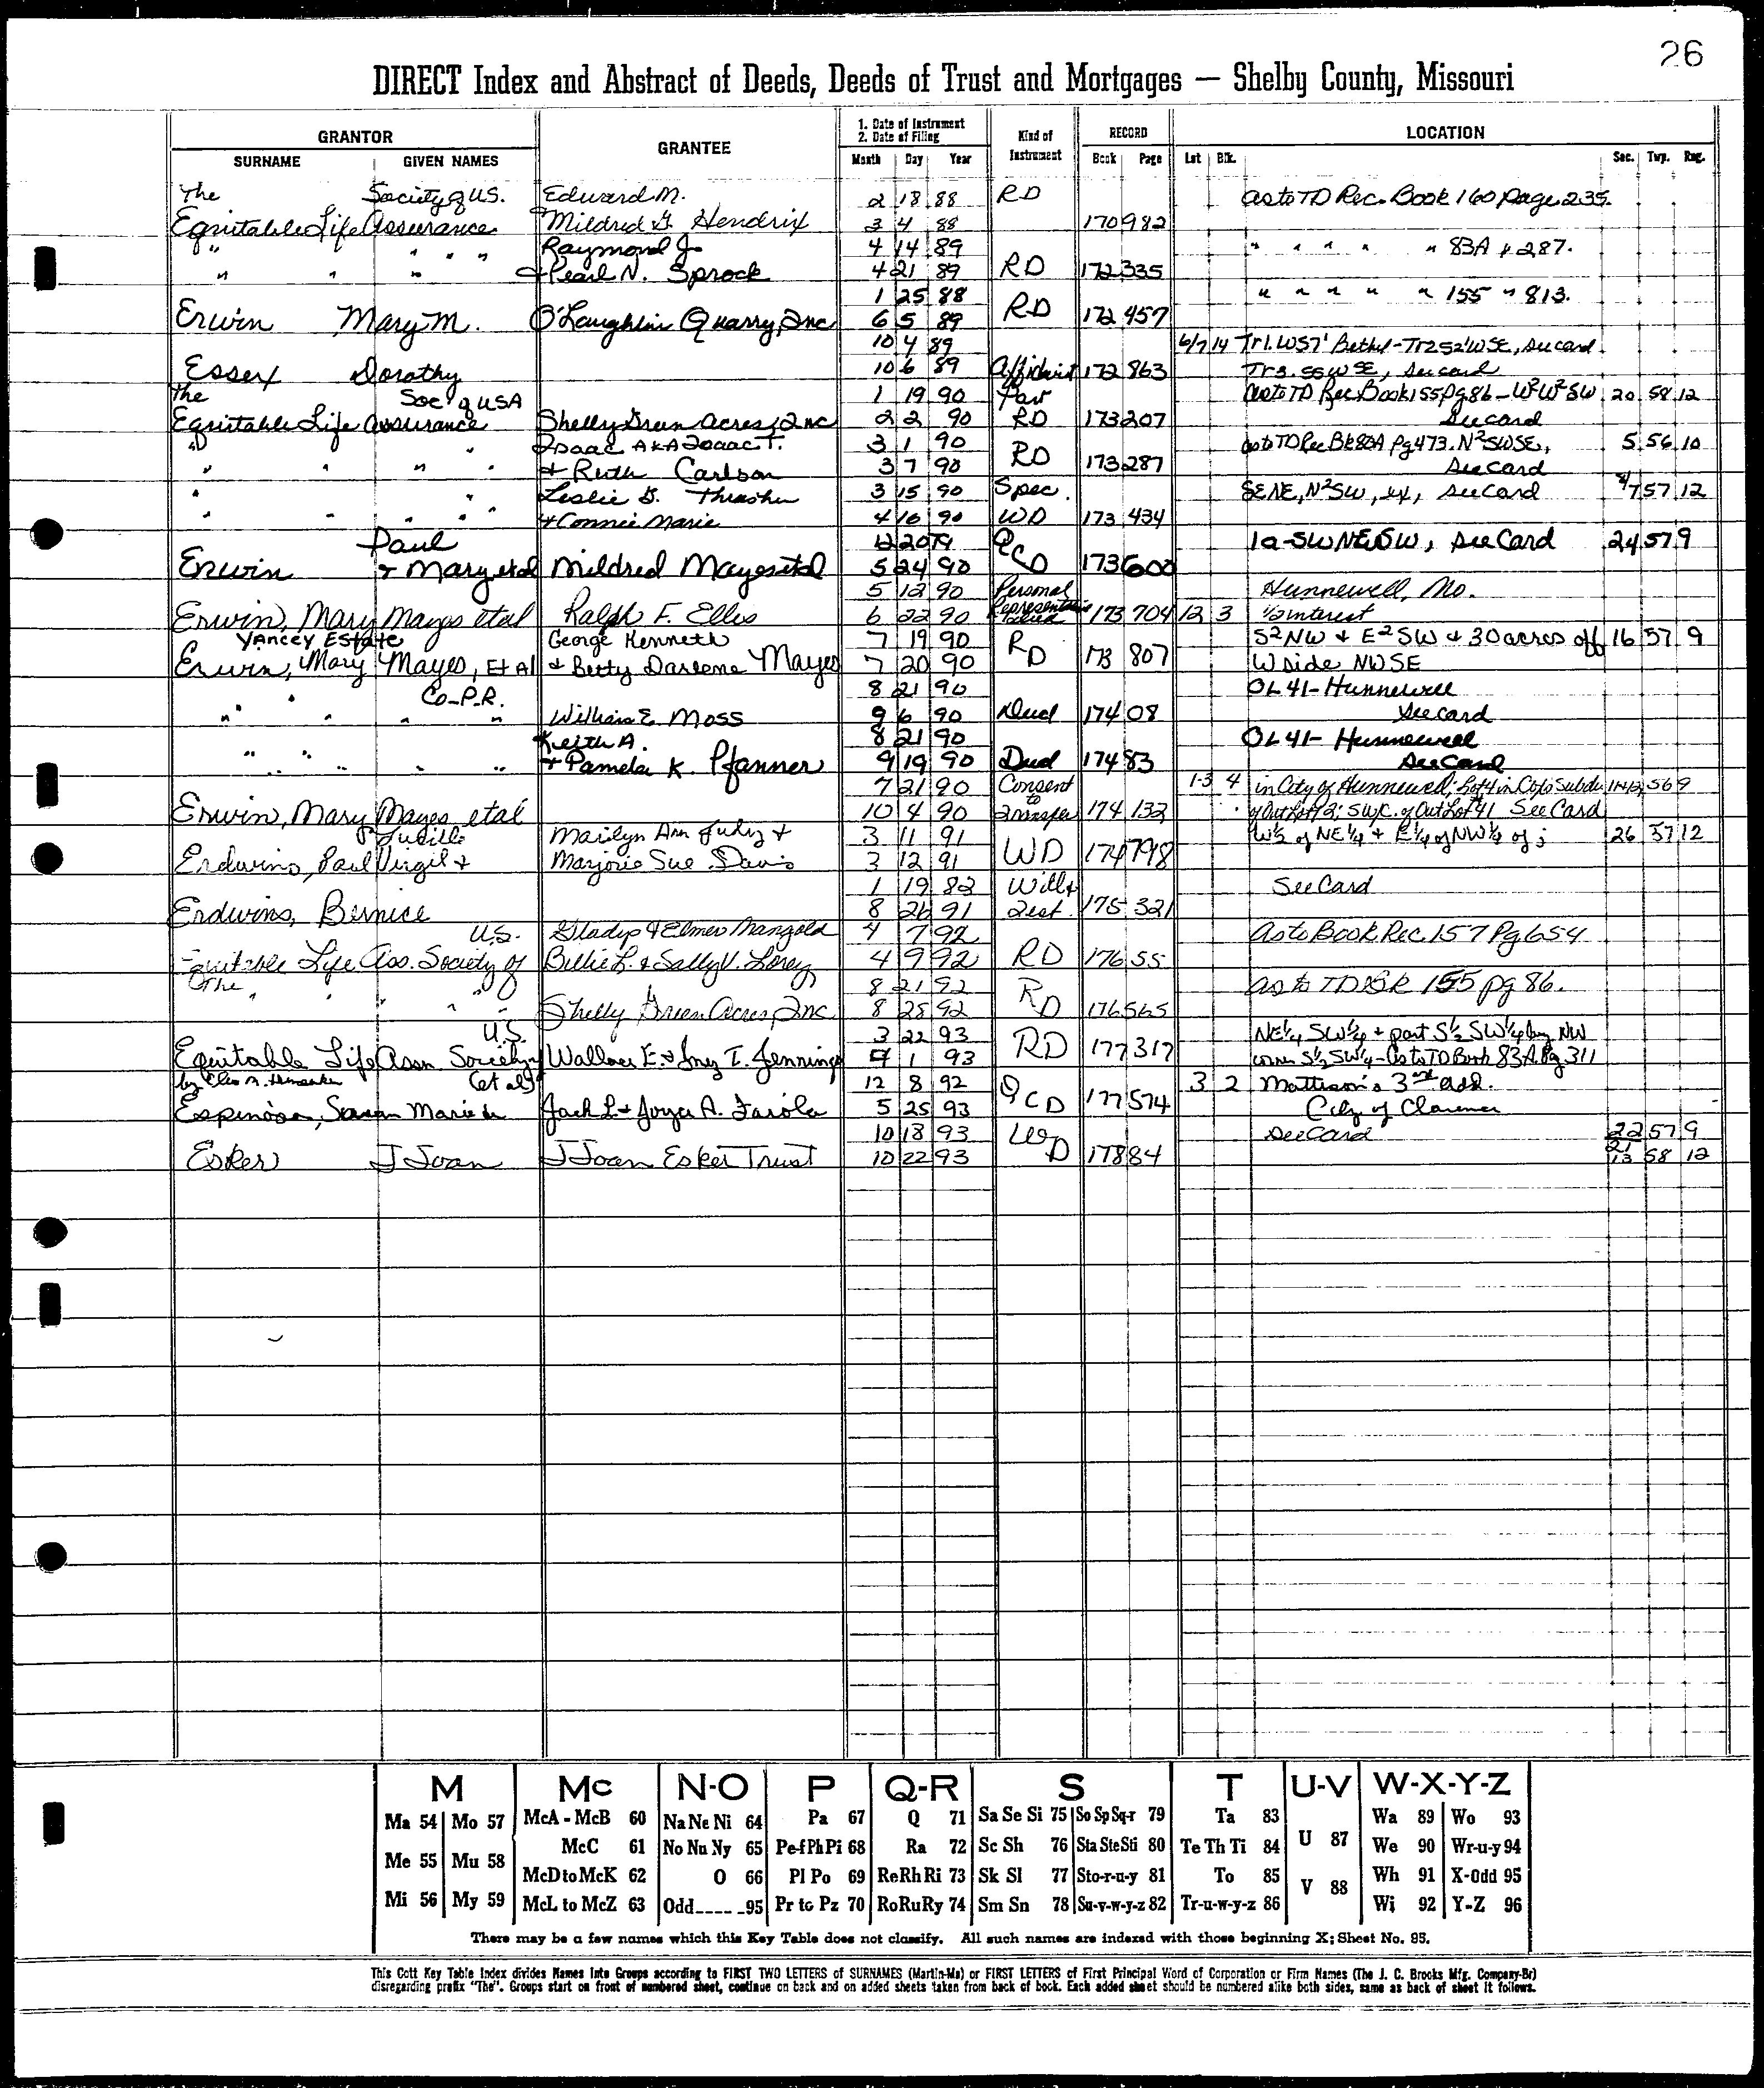 26
DIRECT Index and Abstract of Deeds, Deeds of Trust and Mortgages — Shelby County, Missouri
GRANTOR GRANTEE 1. Date of Instrument 2. Date of Filing Kind of Instrument RECORD LOCATION
SURNAME GIVEN NAMES Month Day Year Book Page Lot Blk. Sec. Twp. Rng.
The Society of U.S. Edward M. 2 18 88 RD as to TD Rec. Book 160 page 235.
Equitable Life Assurance Mildred G. Hendrix 3 4 88 170 982
" " " " Raymond J. 4 14 89 " " " " " 83A " 287.
" " " & Pearl N. Sprock 4 21 89 RD 172 335
1 25 88 " " " " " 155 " 813.
Erwin Mary M. O'Laughlin Quarry, Inc 6 5 89 RD 172 457
10 4 89 6/7 14 Tr1. W57' Bethel - Tr2 S2' WSE, See card
Essex Dorothy 10 6 89 Affidavit 172 863 Tr3. SSWSE, See card
The Soc of USA 1 19 90 Par as to TD Rec. Book 155 Pg 86 - W²W²SW 20 58 12
Equitable Life Assurance Shelby Green Acres, Inc 2 2 90 RD 173 207 See card
" " Isaac AKA Isaac T. 3 1 90 as to TD Rec Bk 83A Pg 473. N²SWSE, 5 56 10
" " " & Ruth Carlson 3 7 90 RD 173 287 See Card
" " Leslie G. Thrasher 3 15 90 Spec. SENE, N²SW, ex, See Card 7 57 12
" " " " & Connie Marie 4 16 90 WD 173 434
Paul 12 20 79 1a-SWNESW, See Card 24 57 9
Erwin & Mary etal Mildred Mayes etal 5 24 90 QCD 173 600
5 12 90 Personal Hunnewell, Mo.
Erwin, Mary Mayes etal Ralph F. Ellis 6 22 90 Representative 173 704 12 3 1/2 interest
Yancey Estate George Kenneth 7 19 90 S²NW & E²SW & 30 acres off 16 57 9
Erwin, Mary Mayes, Et Al & Betty Darlene Mayes 7 20 90 RD 173 807 W side NWSE
" Co-P.R. 8 21 90 OL 41- Hunnewell
" " " " William E. Moss 9 6 90 Deed 174 08 See card
Keith A. 8 21 90 OL 41- Hunnewell
" " " " & Pamela K. Pfanner 9 19 90 Deed 174 83 See Card
7 21 90 Consent 1-3 4 in City of Hunnewell; Lot 4 in Cops Subdv 56 9
Erwin, Mary Mayes etal 10 4 90 to Transfer 174 132 of Out Lot 12; SW/C. of Out Lot 41 See Card
Lucille Marilyn Ann July & 3 11 91 W½ of NE¼ & E¼ of NW¼ of ; 26 57 12
Erdwins, Paul Virgil & Marjorie Sue Davis 3 12 91 WD 174 798
1 19 82 Will & See Card
Erdwins, Bernice 8 26 91 Test. 175 321
U.S. Gladys & Elmer Mangold 4 7 92 As to Book Rec. 157 Pg 654
Equitable Life Ass. Society of Billie L. & Sally V. Lorey 4 9 92 RD 176 55
The " " " " 8 21 92 as to TD BK 155 pg 86.
Shelby Green Acres, Inc 8 25 92 RD 176 565
U.S. 3 22 93 NE¼ SW¼ & part S½ SW¼ beg NW
Equitable Life Assn Society of Wallace E. & Inez I. Jennings 4 1 93 RD 177 317 corner S½ SW¼ - As to TD Book 83A Pg 311
by (et al) 12 8 92 3 2 Mattison's 3rd Add.
Espinosa, Susan Marie Jack L. & Joyce A. Farola 5 25 93 QCD 177 574 City of Clarence
10 18 93 See Card 22 57 9
Esker J Joan J Joan Esker Trust 10 22 93 WD 178 84 21 13 58 12
M Mc N-O P Q-R S T U-V W-X-Y-Z
Ma 54 Mo 57 McA - McB 60 Na Ne Ni 64 Pa 67 Q 71 Sa Se Si 75 So Sp Sq-r 79 Ta 83 Wa 89 Wo 93
McC 61 No Nu Ny 65 Pe-f Ph Pi 68 Ra 72 Sc Sh 76 Sta Ste Sti 80 Te Th Ti 84 U 87 We 90 Wr-u-y 94
Me 55 Mu 58 McD to McK 62 O 66 Pl Po 69 Re Rh Ri 73 Sk Sl 77 Sto-r-u-y 81 To 85 V 88 Wh 91 X-Odd 95
Mi 56 My 59 McL to McZ 63 Odd 95 Pr to Pz 70 Ro Ru Ry 74 Sm Sn 78 Su-v-w-y-z 82 Tr-u-w-y-z 86 Wi 92 Y-Z 96
There may be a few names which this Key Table does not classify. All such names are indexed with those beginning X; Sheet No. 95.
This Cott Key Table Index divides Names Into Groups according to FIRST TWO LETTERS of SURNAMES (Martin-Ma) or FIRST LETTERS of First Principal Word of Corporation or Firm Names (The J. C. Brooks Mfg. Company-Br)
disregarding prefix "The". Groups start on front of numbered sheet, continue on back and on added sheets taken from back of book. Each added sheet should be numbered alike both sides, same as back of sheet it follows.